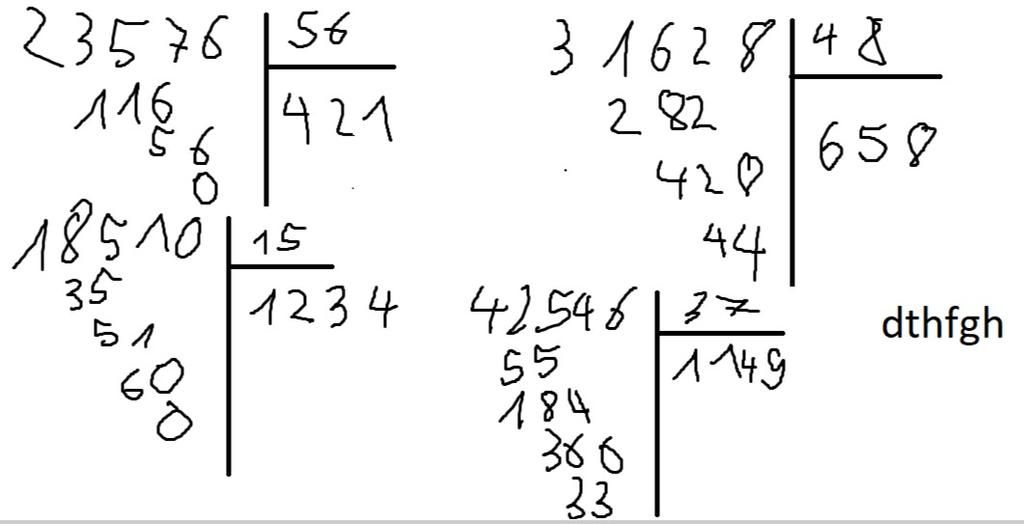 23576 56
116 421
56
0
31628 48
282 658
428
44
18510 15
35 1234
51
60
0
42546 37
55 1149
184
366
33
dthfgh